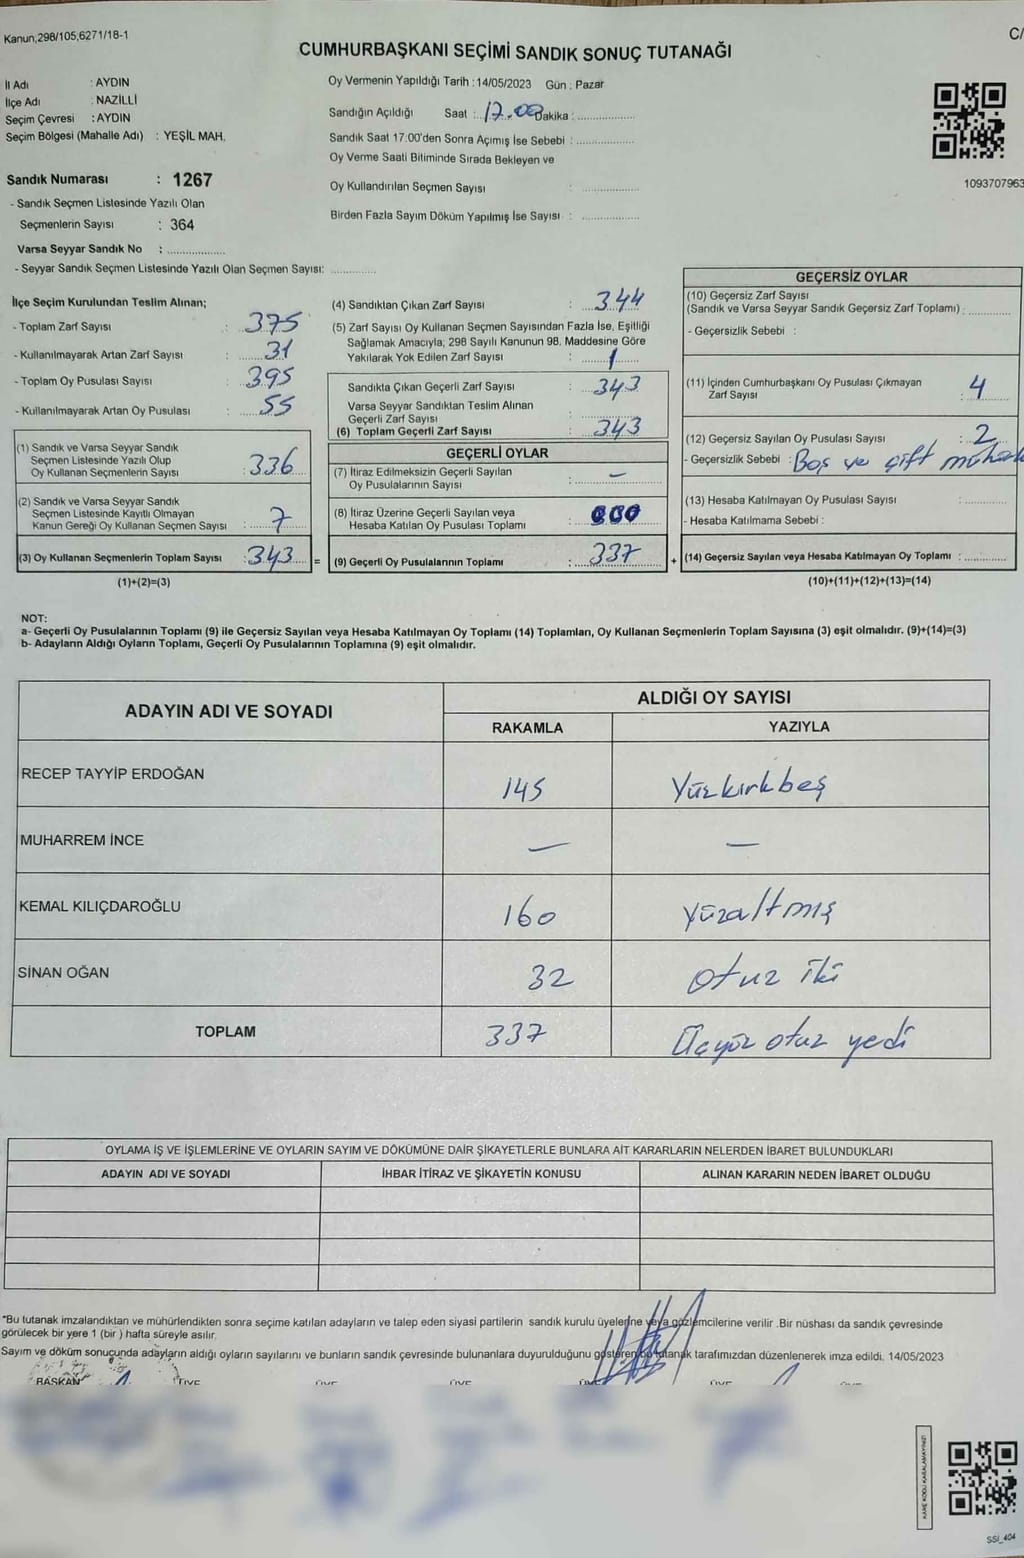 Kanun;298/105,6271/18-1
C/
CUMHURBAŞKANI SEÇİMİ SANDIK SONUÇ TUTANAĞI
İl Adı : AYDIN
İlçe Adı : NAZİLLİ
Seçim Çevresi : AYDIN
Seçim Bölgesi (Mahalle Adı) : YEŞİL MAH.
Sandık Numarası : 1267
- Sandık Seçmen Listesinde Yazılı Olan
Seçmenlerin Sayısı : 364
Varsa Seyyar Sandık No : ..................
- Seyyar Sandık Seçmen Listesinde Yazılı Olan Seçmen Sayısı: ..............
Oy Vermenin Yapıldığı Tarih : 14/05/2023 Gün : Pazar
Sandığın Açıldığı Saat : 17.00 Dakika : ..................
Sandık Saat 17:00'den Sonra Açımış İse Sebebi : ..................
Oy Verme Saati Bitiminde Sırada Bekleyen ve
Oy Kullandırılan Seçmen Sayısı : ..................
Birden Fazla Sayım Döküm Yapılmış İse Sayısı : ..................
1093707963
İlçe Seçim Kurulundan Teslim Alınan;
- Toplam Zarf Sayısı : 375
- Kullanılmayarak Artan Zarf Sayısı : 31
- Toplam Oy Pusulası Sayısı : 395
- Kullanılmayarak Artan Oy Pusulası : 55
(1) Sandık ve Varsa Seyyar Sandık
Seçmen Listesinde Yazılı Olup
Oy Kullanan Seçmenlerin Sayısı : 336
(2) Sandık ve Varsa Seyyar Sandık
Seçmen Listesinde Kayıtlı Olmayan
Kanun Gereği Oy Kullanan Seçmen Sayısı : 7
(3) Oy Kullanan Seçmenlerin Toplam Sayısı : 343 =
(1)+(2)=(3)
(4) Sandıktan Çıkan Zarf Sayısı : 344
(5) Zarf Sayısı Oy Kullanan Seçmen Sayısından Fazla İse, Eşitliği
Sağlamak Amacıyla; 298 Sayılı Kanunun 98. Maddesine Göre
Yakılarak Yok Edilen Zarf Sayısı : 1
Sandıkta Çıkan Geçerli Zarf Sayısı : 343
Varsa Seyyar Sandıktan Teslim Alınan
Geçerli Zarf Sayısı : ..................
(6) Toplam Geçerli Zarf Sayısı : 343
GEÇERLİ OYLAR
(7) İtiraz Edilmeksizin Geçerli Sayılan
Oy Pusulalarının Sayısı : —
(8) İtiraz Üzerine Geçerli Sayılan veya
Hesaba Katılan Oy Pusulası Toplamı : 000
(9) Geçerli Oy Pusulalarının Toplamı : 337 +
GEÇERSİZ OYLAR
(10) Geçersiz Zarf Sayısı
(Sandık ve Varsa Seyyar Sandık Geçersiz Zarf Toplamı) : ............
- Geçersizlik Sebebi :
(11) İçinden Cumhurbaşkanı Oy Pusulası Çıkmayan
Zarf Sayısı : 4
(12) Geçersiz Sayılan Oy Pusulası Sayısı : 2
- Geçersizlik Sebebi : Boş ve çift
(13) Hesaba Katılmayan Oy Pusulası Sayısı : ............
- Hesaba Katılmama Sebebi :
(14) Geçersiz Sayılan veya Hesaba Katılmayan Oy Toplamı : ............
(10)+(11)+(12)+(13)=(14)
NOT:
a- Geçerli Oy Pusulalarının Toplamı (9) ile Geçersiz Sayılan veya Hesaba Katılmayan Oy Toplamı (14) Toplamları, Oy Kullanan Seçmenlerin Toplam Sayısına (3) eşit olmalıdır. (9)+(14)=(3)
b- Adayların Aldığı Oyların Toplamı, Geçerli Oy Pusulalarının Toplamına (9) eşit olmalıdır.
ADAYIN ADI VE SOYADI ALDIĞI OY SAYISI
RAKAMLA YAZIYLA
RECEP TAYYİP ERDOĞAN 145 Yüzkırkbeş
MUHARREM İNCE — —
KEMAL KILIÇDAROĞLU 160 yüzaltmış
SİNAN OĞAN 32 otuz iki
TOPLAM 337 Üçyüz otuz yedi
OYLAMA İŞ VE İŞLEMLERİNE VE OYLARIN SAYIM VE DÖKÜMÜNE DAİR ŞİKAYETLERLE BUNLARA AİT KARARLARIN NELERDEN İBARET BULUNDUKLARI
ADAYIN ADI VE SOYADI İHBAR İTİRAZ VE ŞİKAYETİN KONUSU ALINAN KARARIN NEDEN İBARET OLDUĞU
*Bu tutanak imzalandıktan ve mühürlendikten sonra seçime katılan adayların ve talep eden siyasi partilerin sandık kurulu üyelerine veya gözlemcilerine verilir .Bir nüshası da sandık çevresinde
görülecek bir yere 1 (bir ) hafta süreyle asılır.
Sayım ve döküm sonuçunda adayların aldığı oyların sayılarını ve bunların sandık çevresinde bulunanlara duyurulduğunu gösteren bu tutanak tarafımızdan düzenlenerek imza edildi. 14/05/2023
BAŞKAN ÜYE ÜYE ÜYE ÜYE ÜYE ÜYE
KARE KODU KARALAMAYINIZ!
SSI_404